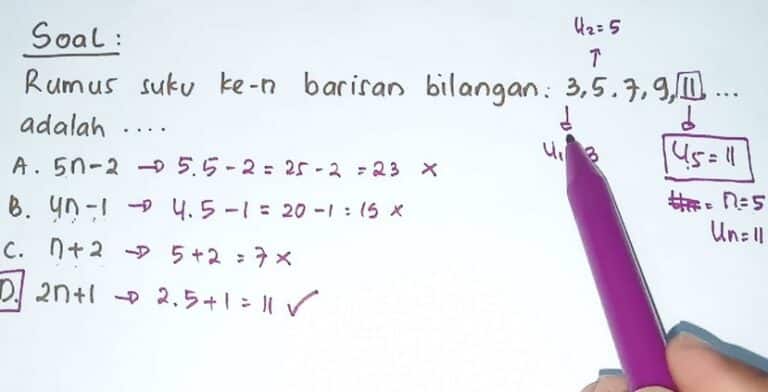 Soal:
U2=5
Rumus suku ke-n barisan bilangan: 3, 5, 7, 9, 11, ...
adalah ....
U1 3
U5 = 11
A. 5n-2 → 5.5-2 = 25-2 = 23 ×
= n=5
B. 4n-1 → 4.5-1 = 20-1 = 19 ×
Un=11
C. n+2 → 5+2 = 7 ×
D. 2n+1 → 2.5+1 = 11 ✓